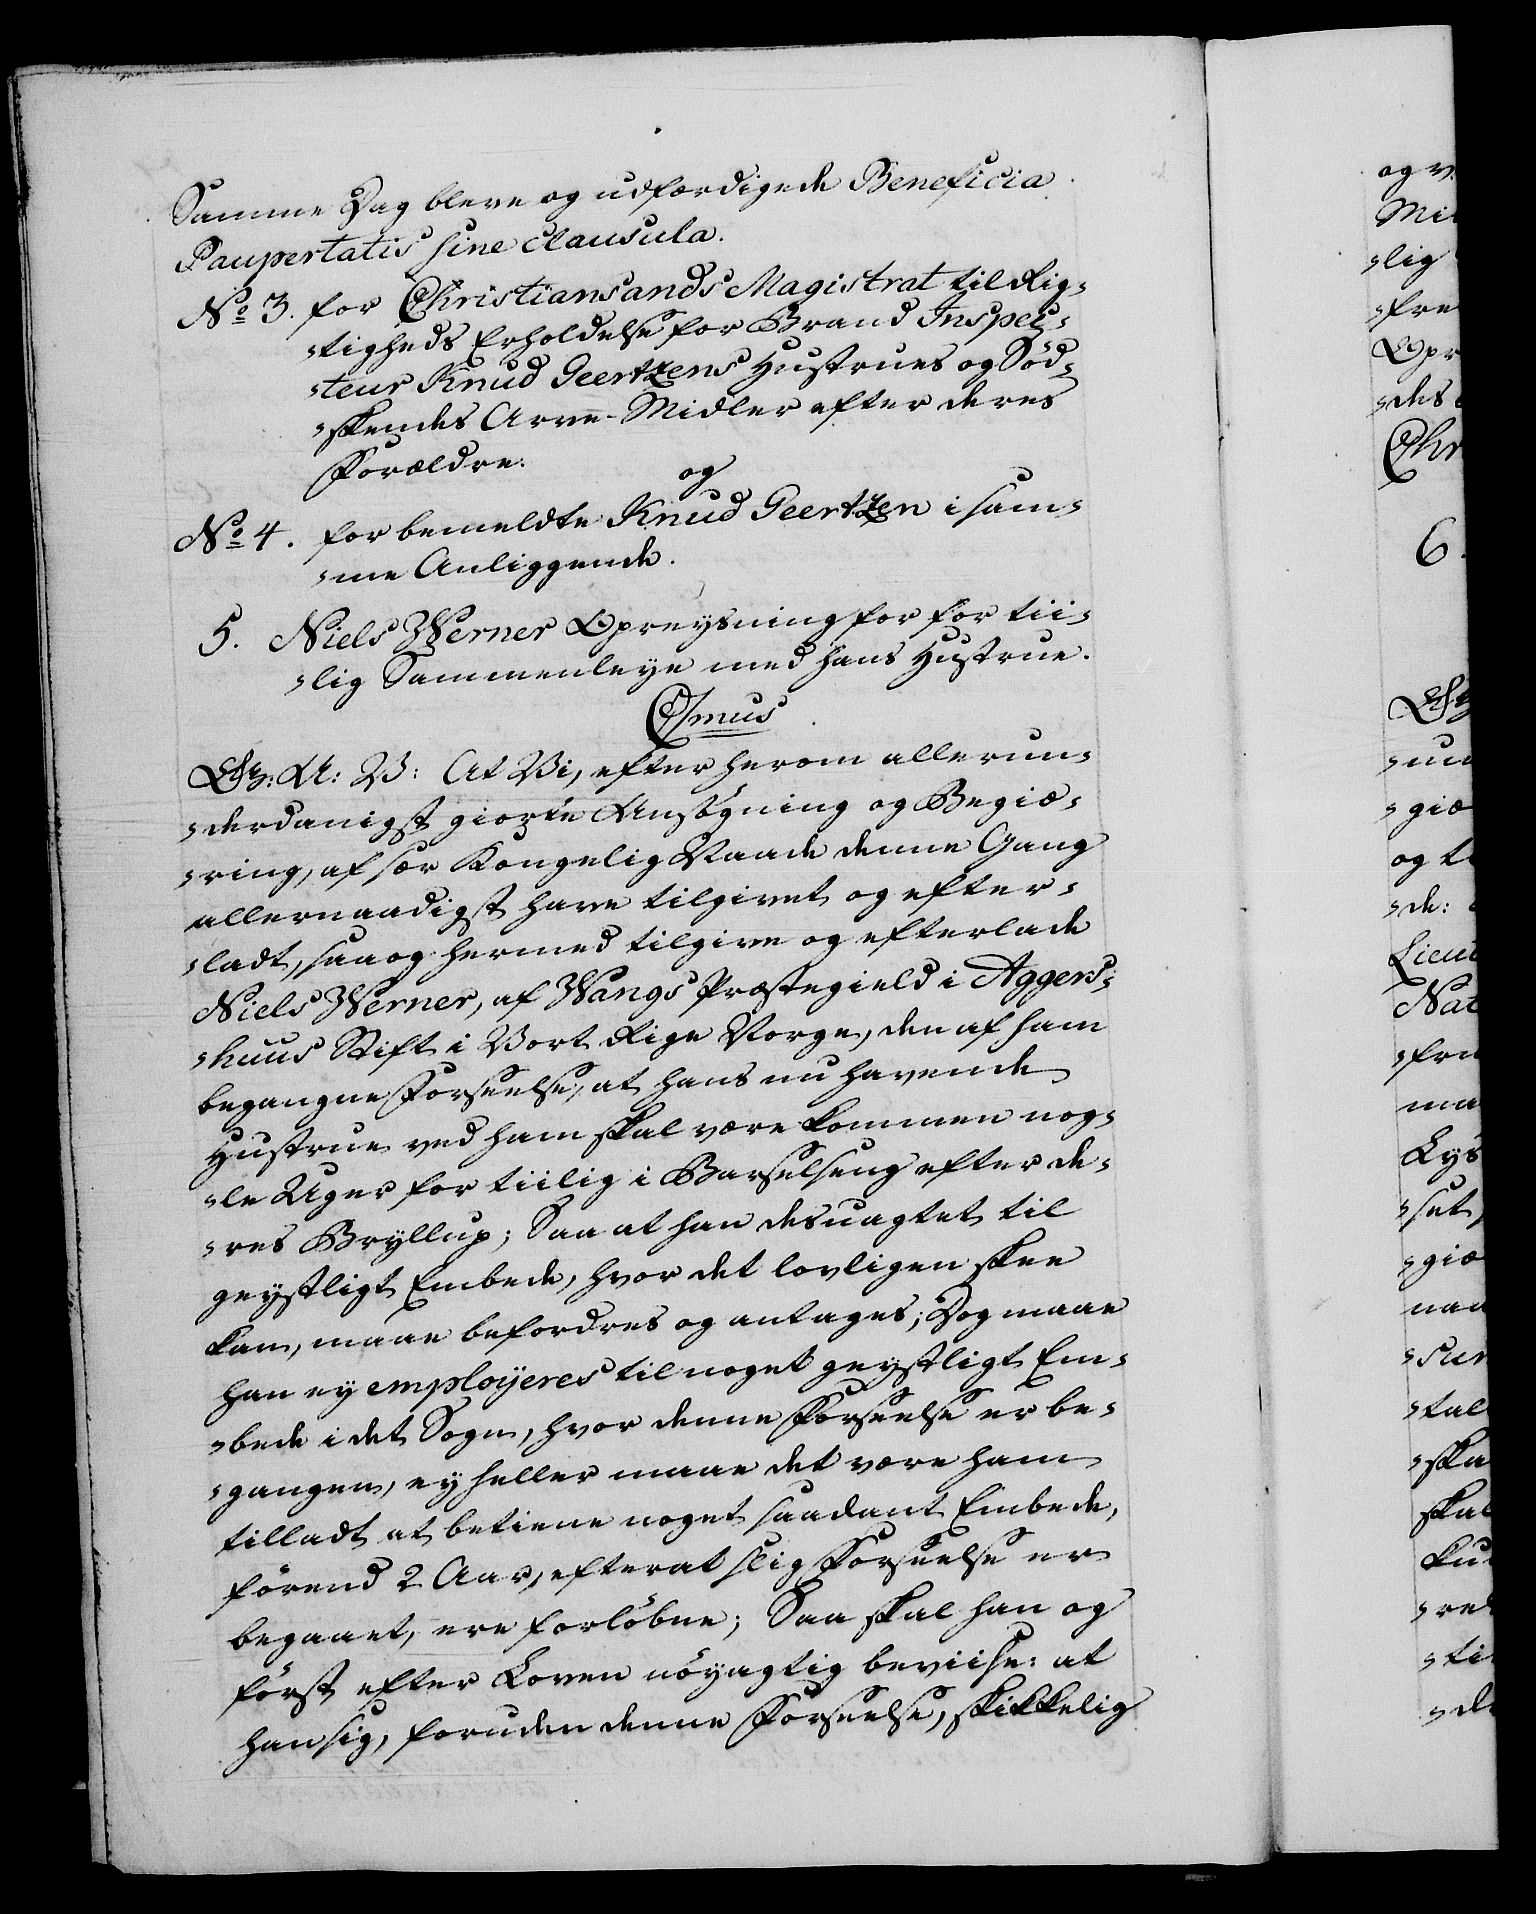 Samme Dag bleve og udfærdigede Beneficia
Paupertatis sine clausula.
No 3. for Christiansands Magistrat til Rig-
-tigheds Erholdelse for Brand Inspec-
-teur Knud Geertzens Hustrues og Söd-
-skendes Arve-Midler efter deres
Forældre.
og
No 4. for bemeldte Knud Geertzen i sam-
-me Anliggende.
5. Niels Werner Opreysning for for tii-
-lig Sammenleye med hans Hustrue.
C7mus
G: A: V: At Vi, efter herom allerun-
-derdanigst giorte Ansögning og Begiæ-
-ring, af sær Kongelig Naade denne Gang
allernaadigst have tilgivet og efter-
-ladt, saa og hermed tilgive og efterlade
Niels Werner, af Wangs Præstegield i Aggers-
-huus Stift i Vort Rige Norge, den af ham
begangne Forseelse, at hans nu havende
Hustrue ved ham skal være kommen nog-
-le Uger for tiilig i Barselseng efter de-
-res Bryllup; Saa at han desuagtet til
geystligt Embede, hvor det lovligen skee
kan, maae befordres og antages; Dog maae
han ey employeres til noget geystligt Em-
-bede i det Sogn, hvor denne Forseelse er be-
-gangen, ey heller maae det være ham
tilladt at betiene noget saadant Embede,
förend 2 Aar, efterat slig Forseelse er
begaaet, ere forlöbne; Saa skal han og
först efter Loven nöyagtig beviise: at
han sig, foruden denne Forseelse, skikkelig
og v
Mi
-lig
-fre
Opr
-des
Chr
6.
-un
-giæ
og t
-de:
Lieut
Nat
-fru
ma
Lys
-set,
-giæ
naa
-sur
-tal
-ska
skal
-ret
-ti
-de